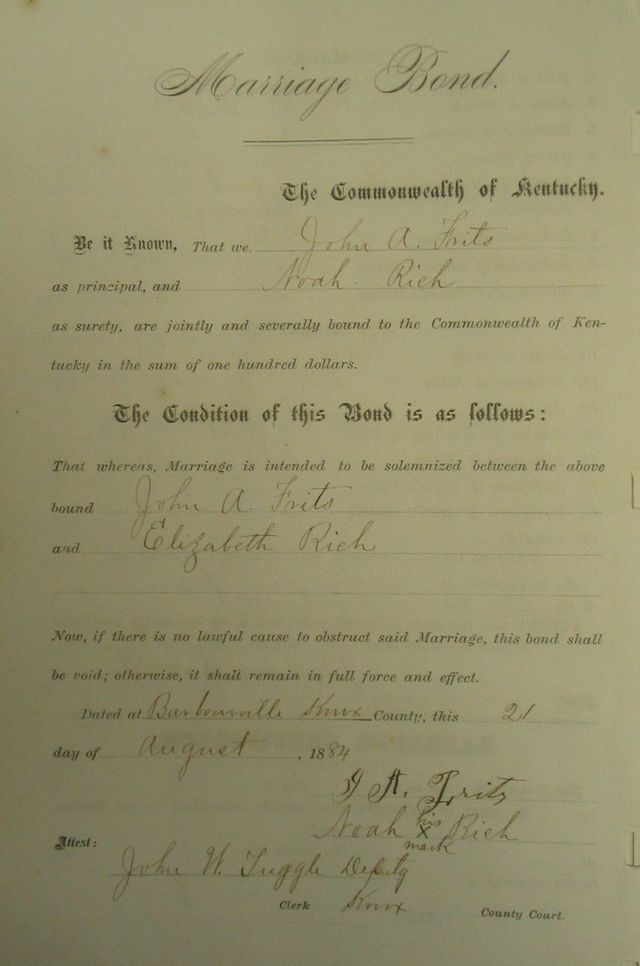 Marriage Bond.
The Commonwealth of Kentucky.
Be it Known, That we John A. Frits
as principal, and Noah Rich
as surety, are jointly and severally bound to the Commonwealth of Ken-
tucky in the sum of one hundred dollars.
The Condition of this Bond is as follows:
That whereas, Marriage is intended to be solemnized between the above
bound John A. Frits
and Elizabeth Rich
Now, if there is no lawful cause to obstruct said Marriage, this bond shall
be void; otherwise, it shall remain in full force and effect.
Dated at Barbourville Knox County, this 21
day of August, 1884
J A. Frits
his
Noah X Rich
mark
Attest:
John W. Tuggle Deputy
Clerk Knox County Court.